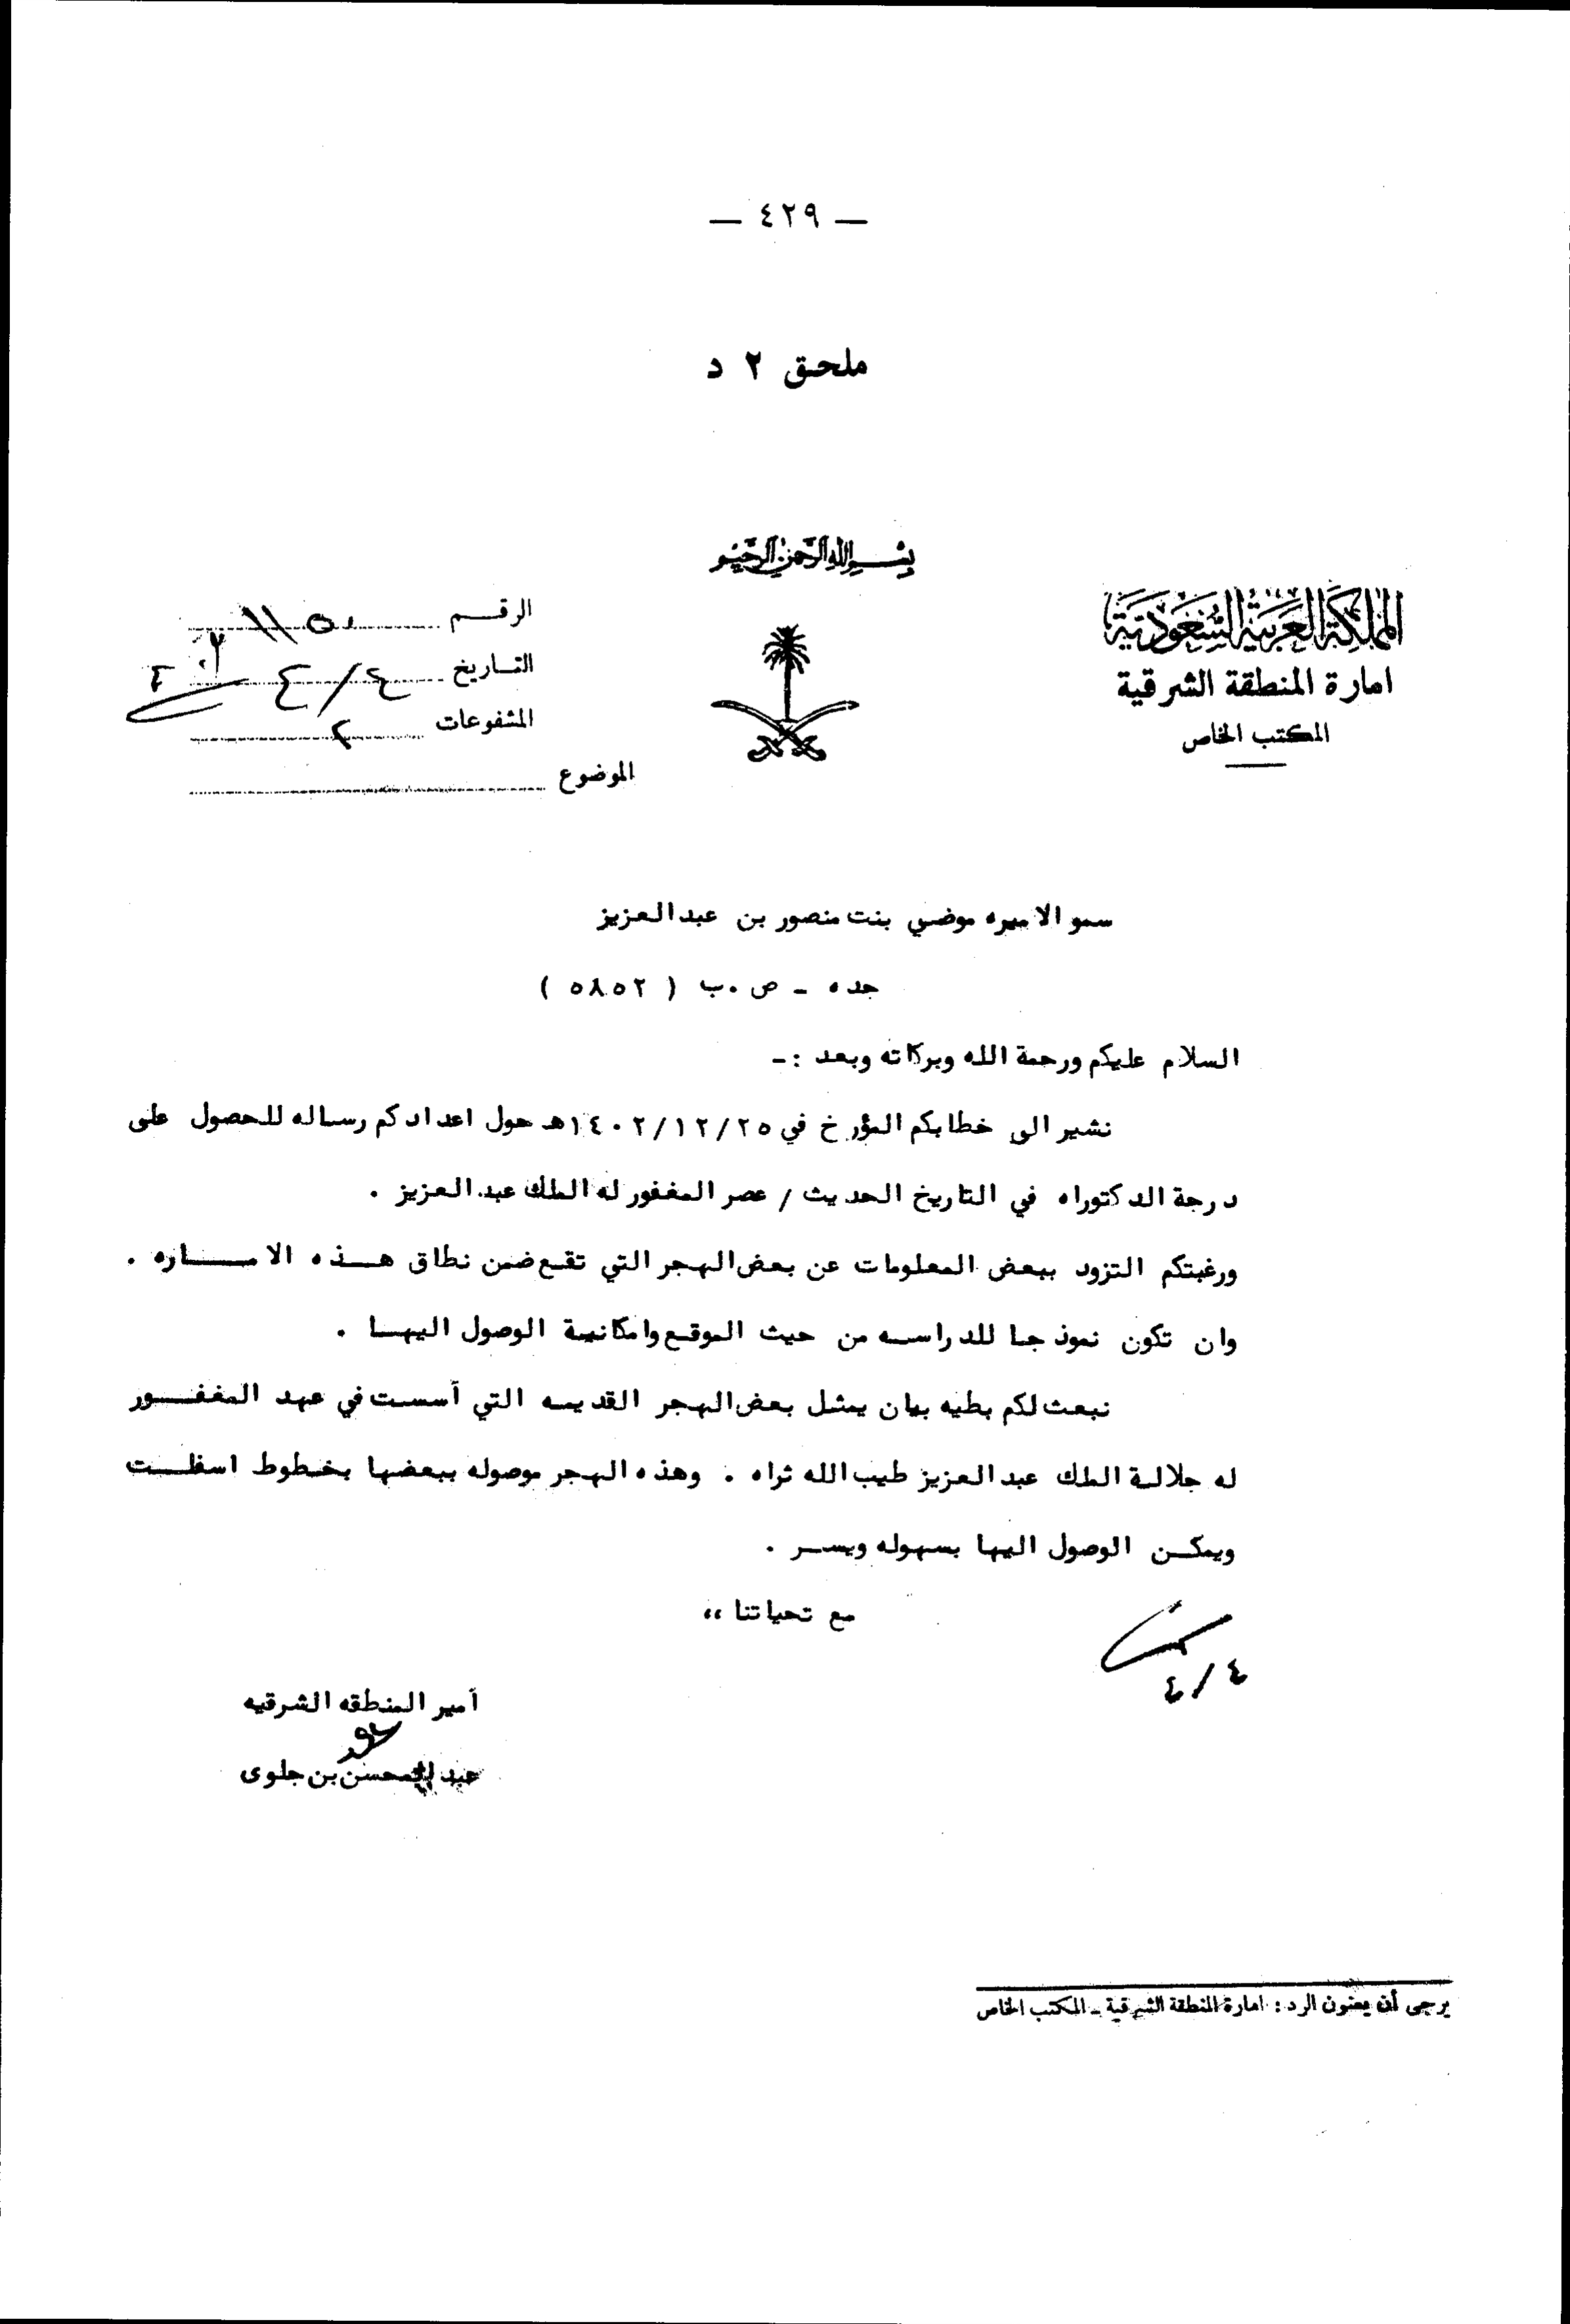 — ٤٢٩ —
ملحق ٢ د
بسم الله الرحمن الرحيم
المملكة العربية السعودية
امارة المنطقة الشرقية
المكتب الخاص
الرقم
التاريخ ٤/٤
المشفوعات ٢
الموضوع
سمو الاميره موضي بنت منصور بن عبدالعزيز
جده - ص.ب ( ٥٨٥٢ )
السلام عليكم ورحمة الله وبركاته وبعد :-
نشير الى خطابكم المؤرخ في ١٤٠٢/١٢/٢٥هـ حول اعدادكم رساله للحصول على
درجة الدكتوراه في التاريخ الحديث / عصر المغفور له الملك عبدالعزيز .
ورغبتكم التزود ببعض المعلومات عن بعض الهجر التي تقع ضمن نطاق هـذه الامـاره .
وان تكون نموذجا للدراسـه من حيث الموقع وامكانية الوصول اليهـا .
نبعث لكم بطيه بيان يمثل بعض الهجر القديمه التي أسست في عهد المغفـور
له جلالـة الملك عبدالعزيز طيب الله ثراه . وهذه الهجر موصوله ببعضها بخطوط اسفلـت
ويمكـن الوصول اليها بسهوله ويسـر .
مع تحياتنا ،،
٤/٤
أمير المنطقه الشرقيه
عبدالمحسن بن جلوى
يرجى أن يعنون الرد : امارة المنطقة الشرقية - المكتب الخاص